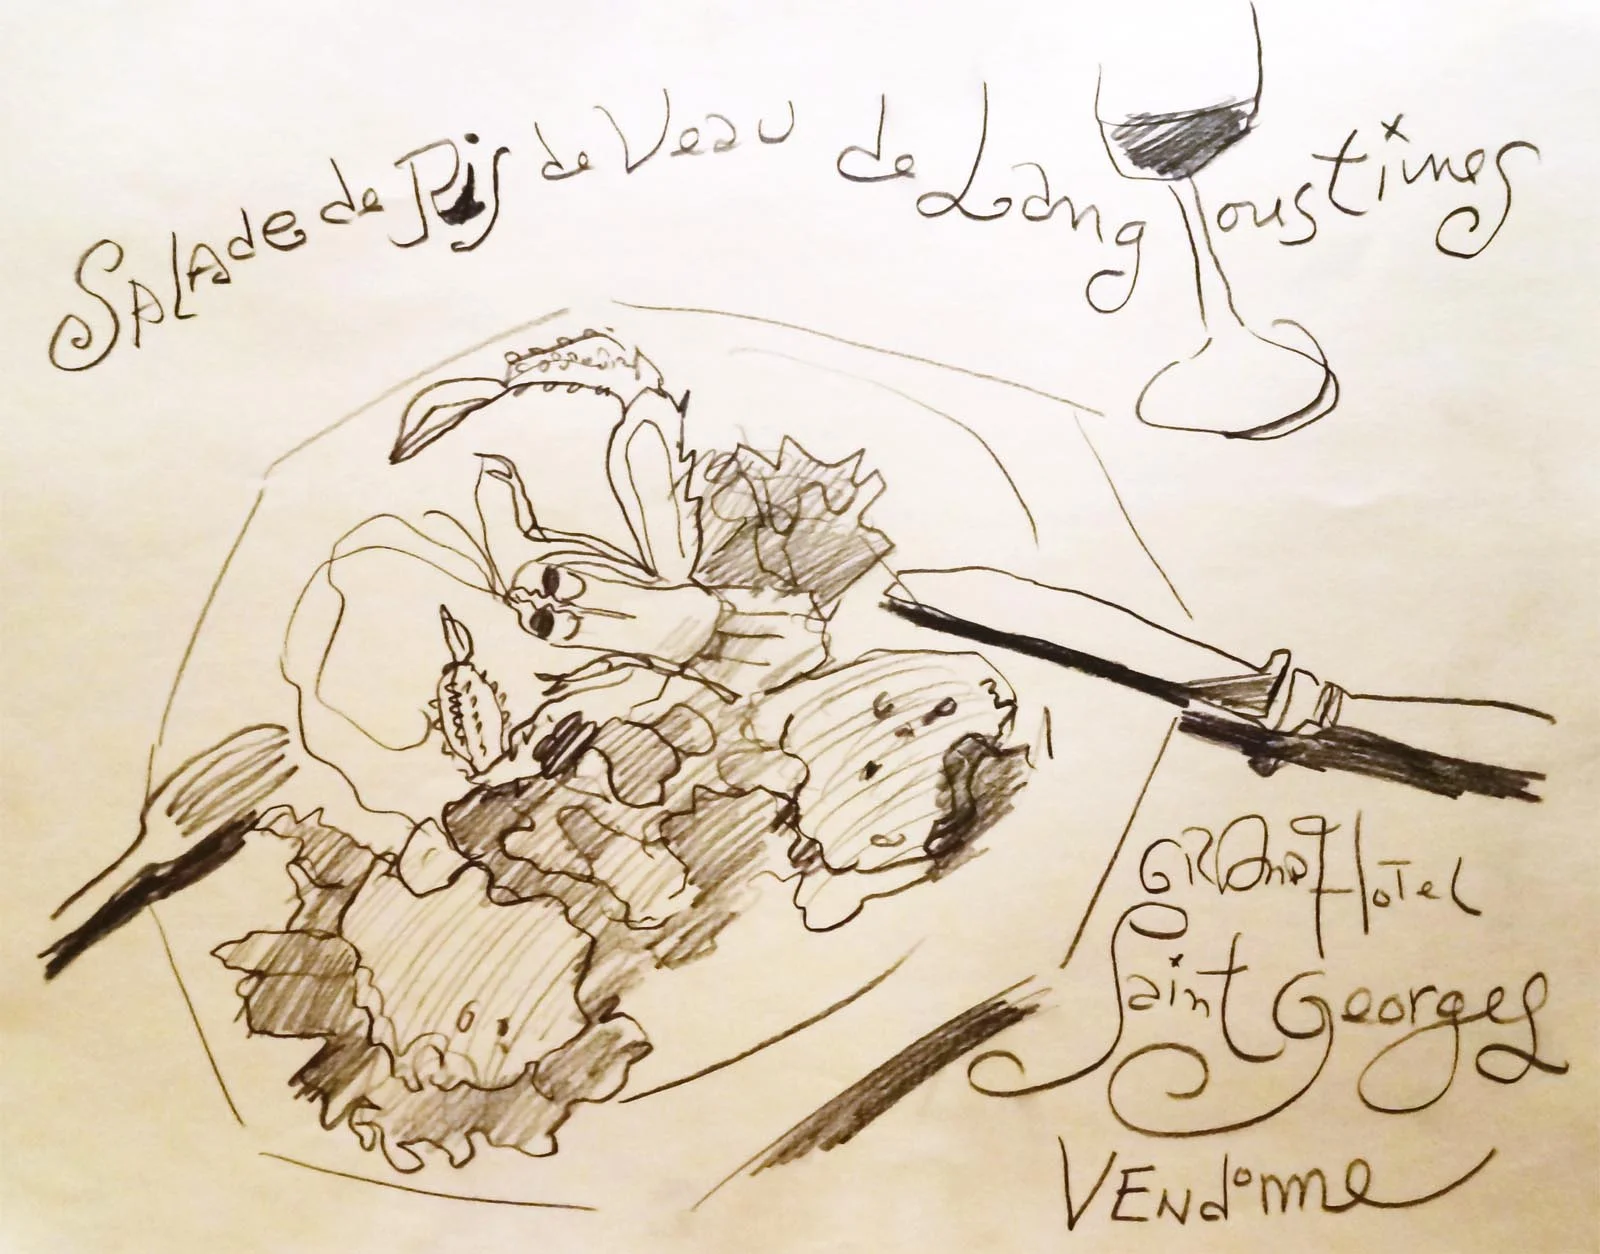 SALAde de Ris de Veau de Langoustines
GRAnd HoTel
Saint Georges
VENdome